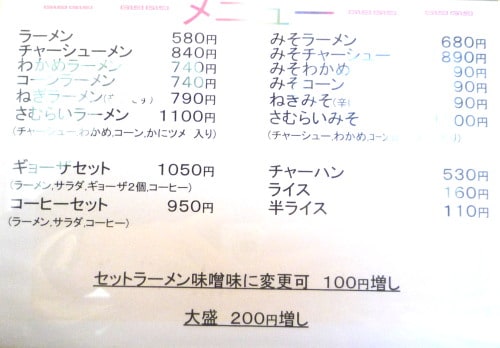 メニュー
ラーメン 580円
チャーシューメン 840円
わかめラーメン 740円
コーンラーメン 740円
ねぎラーメン 790円
さむらいラーメン 1100円
(チャーシュー,わかめ,コーン,かにツメ 入り)
みそラーメン 680円
みそチャーシュー 890円
みそわかめ 90円
みそコーン 90円
ねぎみそ(辛 90円
さむらいみそ 00円
(チャーシュー,わかめ,コーン 入り)
ギョーザセット 1050円
(ラーメン,サラダ,ギョーザ2個,コーヒー)
コーヒーセット 950円
(ラーメン,サラダ,コーヒー)
チャーハン 530円
ライス 160円
半ライス 110円
セットラーメン味噌味に変更可 100円増し
大盛 200円増し